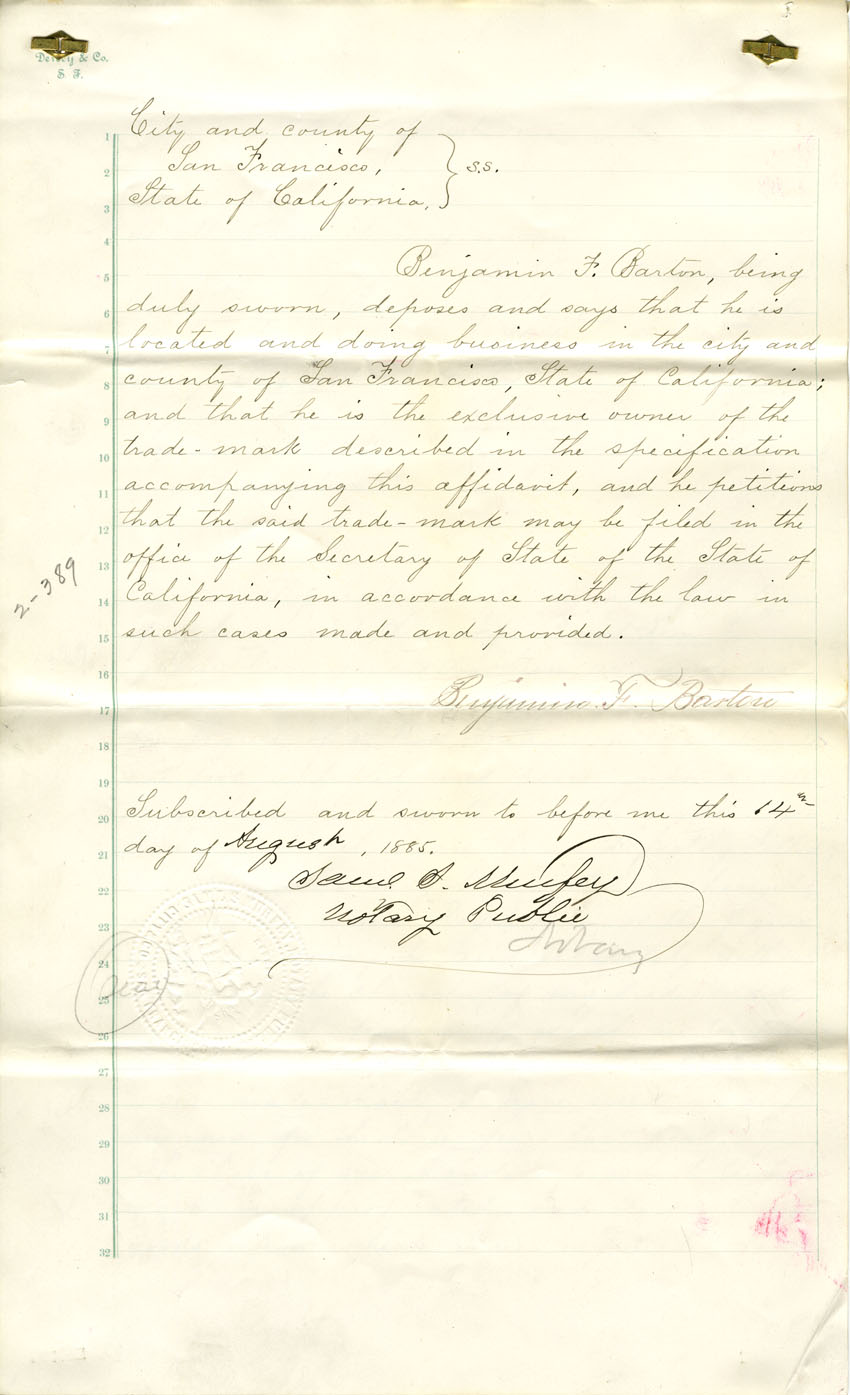 & Co.
S. F.
City and county of
San Francisco,
State of California.
} s.s.
Benjamin F. Barton, being
duly sworn, deposes and says that he is
located and doing business in the city and
county of San Francisco, State of California;
and that he is the exclusive owner of the
trade-mark described in the specification
accompanying this affidavit, and he petitions
that the said trade-mark may be filed in the
office of the Secretary of State of the State of
California, in accordance with the law in
such cases made and provided.
2-389
Benjamin F. Barton
Subscribed and sworn to before me this 14th
day of August, 1885.
Saml. S. Murfey
Notary Public
Notary
Seal
1
2
3
4
5
6
7
8
9
10
11
12
13
14
15
16
17
18
19
20
21
22
23
24
25
26
27
28
29
30
31
32